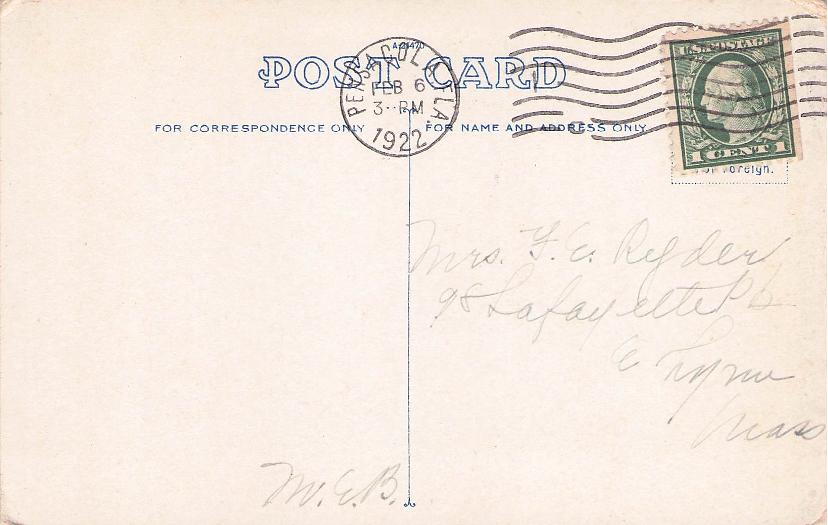 A-21470
POST CARD
PENSACOLA, FLA.
FEB 6
3-PM
1922
U.S. POSTAGE
1 CENT 1
FOR CORRESPONDENCE ONLY
FOR NAME AND ADDRESS ONLY
Foreign.
Mrs. F. E. Ryder
98 Lafayette Pk
E Lynn
Mass
M.E.B.